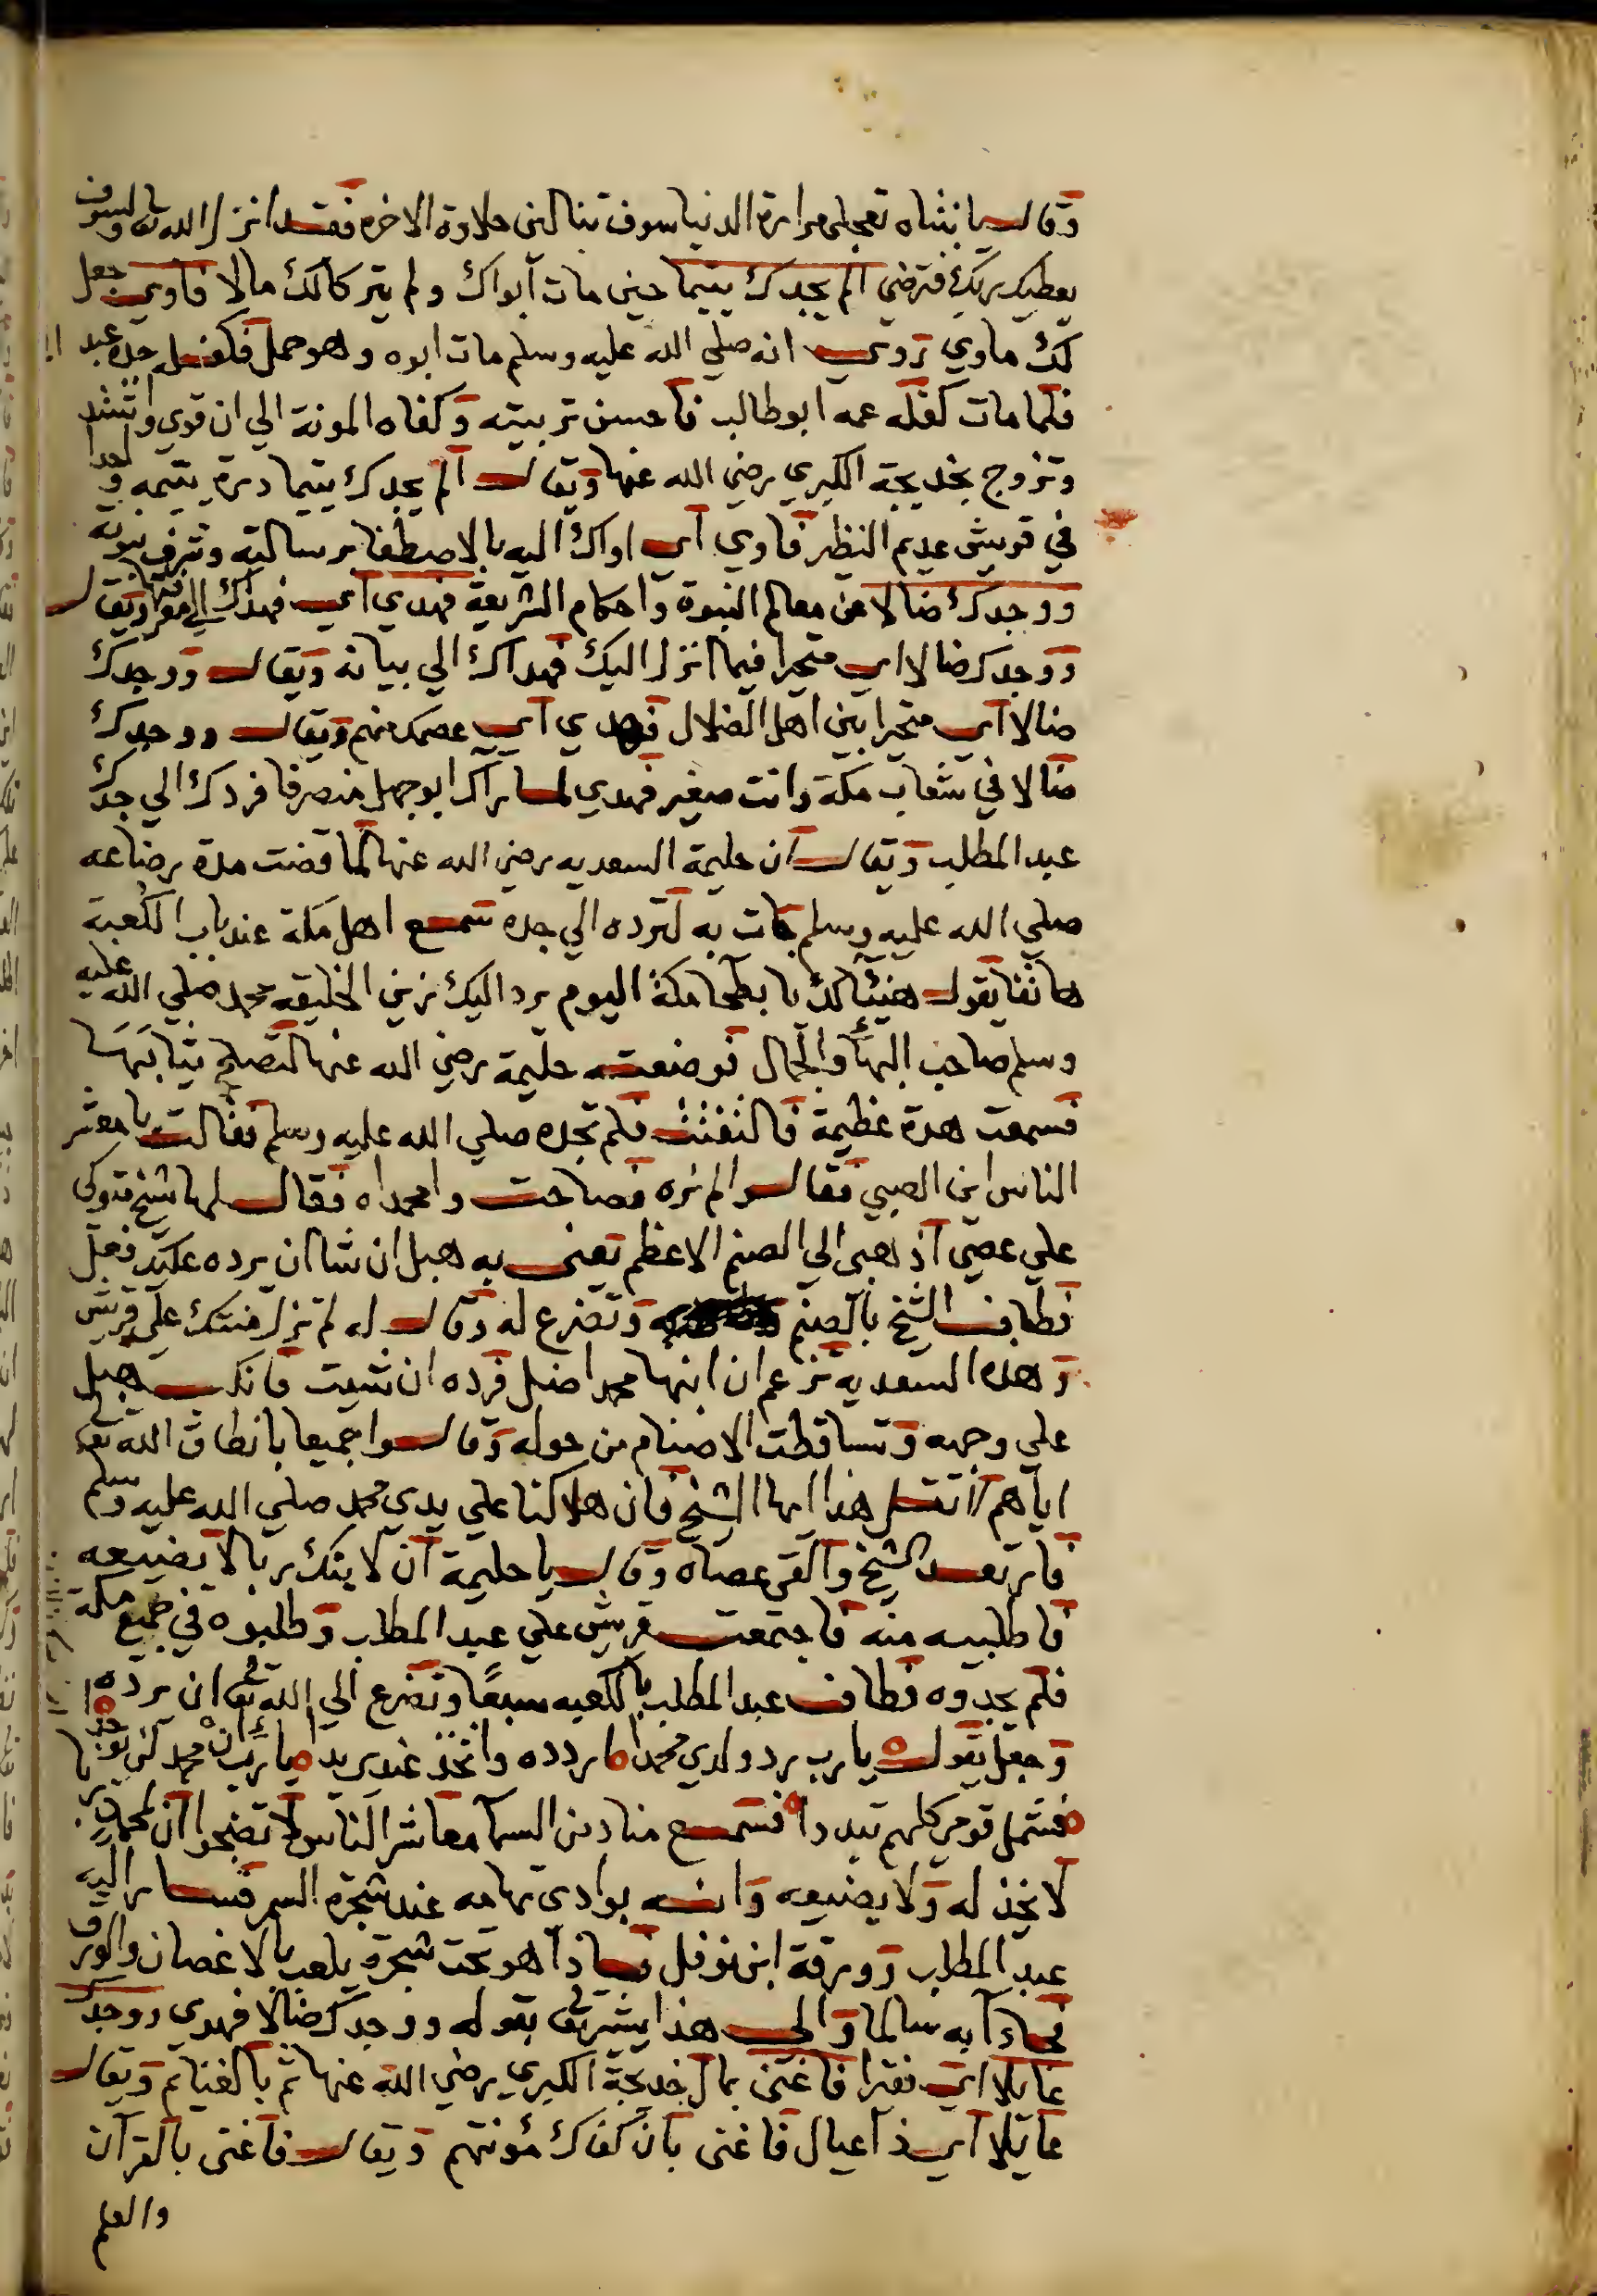 وقال يا بنتاه تعجلي مرارة الدنيا سوف تنالين حلاوة الاخره فقد انزل الله تعالى ولسوف
يعطيك ربك فترضي الم يجدك يتيما حين مات أبواك ولم يتركا لك مالا فاوي جعل
لك ماوي روي انه صلي الله عليه وسلم مات ابوه وهو حمل فكفله جده عبد
فلما مات كفله عمه ابوطالب فاحسن تربيته وكفاه المونة الي ان قوي واشتد
وتزوج بخديجة الكبري رضي الله عنها ويقال الم يجدك يتيما درة يتيمه واحدا
في قريش عديم النظر فاوي أي اواك اليه بالاصطفا برسالته وشرف نبوته
ووجدك ضالا عن معالم النبوة واحكام الشريعة فهدي أي فهداك الي معرفتها ويقال
ووجدك ضالا اي متحيرا فيما انزل اليك فهداك الي بيانه ويقال ووجدك
ضالا أي متحيرا بين اهل الضلال فهدي أي عصمك منهم ويقال ووجدك
ضالا في شعاب مكة وانت صغير فهدي لما رآك ابوجهل منصرفا فردك الي جدك
عبد المطلب ويقال ان حليمة السعديه رضي الله عنها لما قضت مدة رضاعه
صلي الله عليه وسلم جات به لترده الي جده سمع اهل مكة عند باب الكعبة
هاتفا يقول هنيئا لك يا بطحا مكة اليوم يرد اليك زين الخليقه محمد صلي الله عليه
وسلم صاحب البهاء والجمال فوضعته حليمة رضي الله عنها لتصلح ثيابها
فسمعت هدة عظيمة فالتفتت فلم تجده صلي الله عليه وسلم فقالت يا معشر
الناس اين الصبي فقالوا لم نره فصاحت وامحمداه فقال لها شيخ متوكى
علي عصي اذهبى الي الصنم الاعظم تعنى به هبل ان شا ان يرده عليك فعل
فطاف الشيخ بالصنم وتضرع له وقال له لم تزل منتك علي قريش
وهذه السعديه تزعم ان ابنها محمد اضل فرده ان شيت فانكب هبل
علي وجهه وتساقطت الاصنام من حوله وقالوا جميعا بانطاق الله تعالى
اياهم لا تقل هذا ايها الشيخ فان هلاكنا علي يدي محمد صلي الله عليه وسلم
فارتعد الشيخ والقى عصاه وقال يا حليمة ان لابنك ربا لا يضيعه
فاطلبيه منه فاجتمعت قريش علي عبد المطلب وطلبوه في جميع مكة
فلم يجدوه فطاف عبد المطلب بالكعبه سبعًا وتضرع الي الله تعالى ان يرده
وجعل يقول يا رب رد ولدي محمدا اردده واتخذ عندي يدا يا رب ان محمد لم يوجدا
فشمل قومي كلهم تبددا فسمع مناد من السما معاشر الناس لا تضجوا ان لمحمد ربا
لا يخذله ولا يضيعه وانه بوادى تهامه عند شجرة السمر فسار اليه
عبد المطلب وورقة ابن نوفل فاذا هو تحت شجرة يلعب بالاغصان والورق
فجاءا به سالما والي هذا يشير تعالى بقوله ووجدك ضالا فهدي ووجدك
عايلا اي فقيرا فاغنى بمال خديجة الكبري رضي الله عنها ثم بالغنايم ويقال
عايلا أي ذا عيال فاغنى بان كفاك مؤنتهم ويقال فاغنى بالقرآن
والعلم